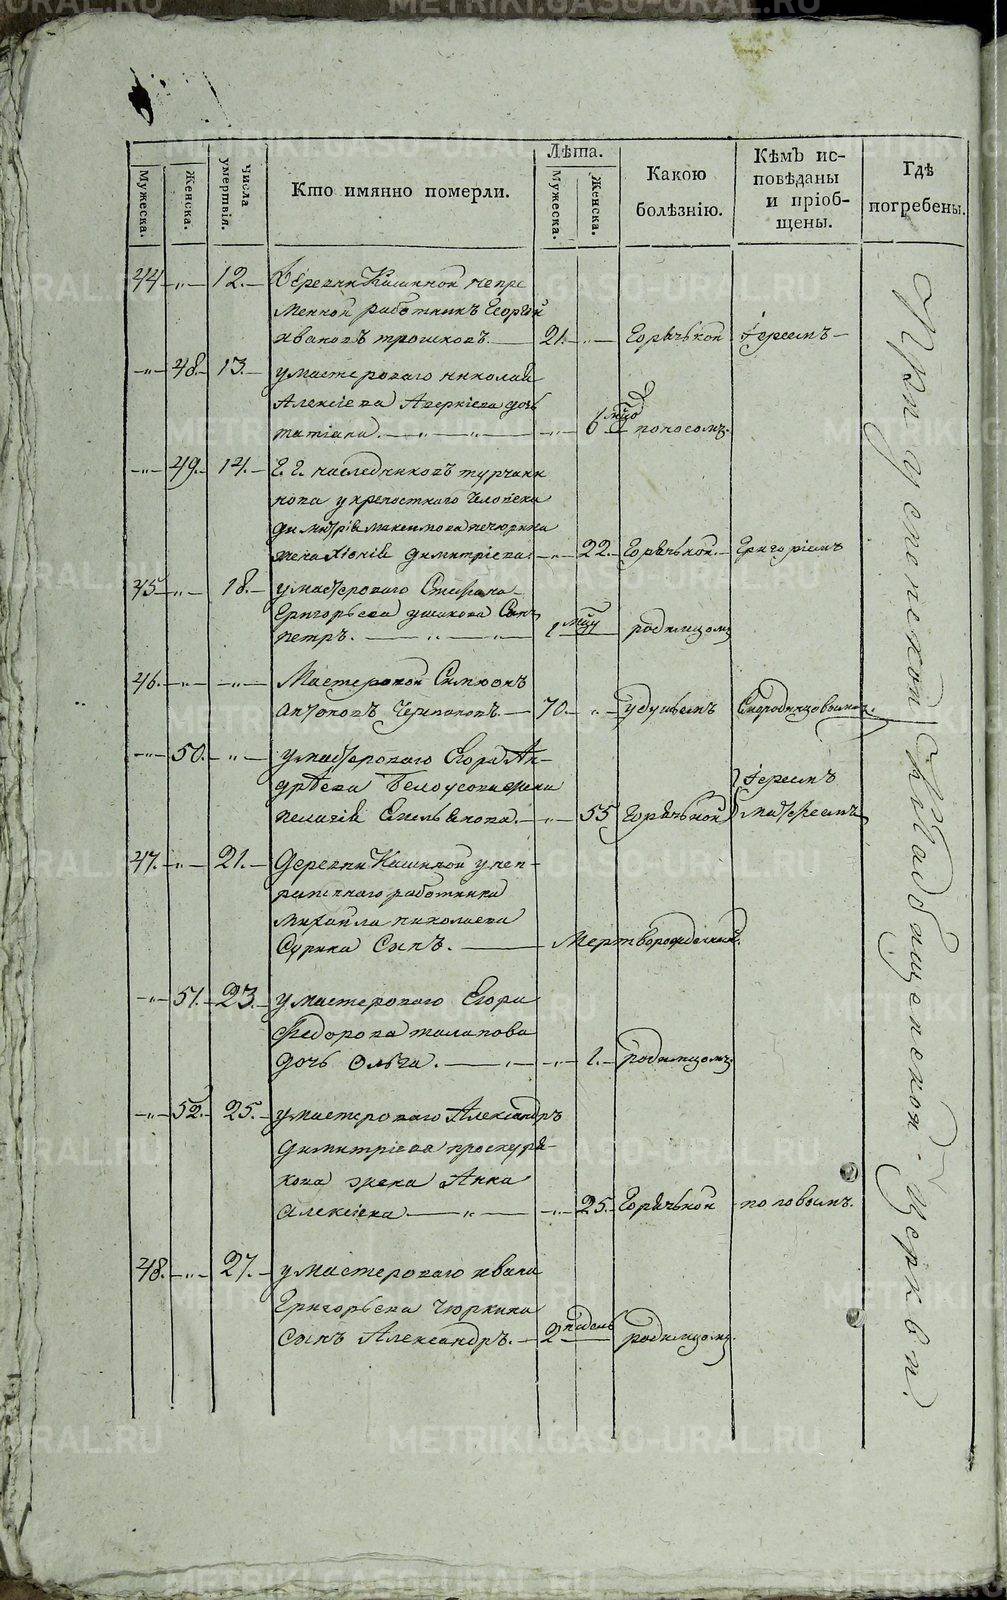 Мужеска.
Женска.
Числа умертвія.
Кто имянно померли.
Лѣта.
Мужеска.
Женска.
Какою болѣзнію.
Кѣмъ исповѣданы и пріобщены.
Гдѣ погребены.
44 — „ — 12. — Деревни Кашиной непре
менной работникъ Георгій
Ивановъ трошковъ. — 21. — „ — Горячькой Іереемъ —
— „ — 48. — 13. — у мастероваго николая
Алексіева Аверкіева дочь
татіана. — „ — „ — — „ — 6 мцо поносомъ.
— „ — 49. — 14. — Г. Г. наследниковъ турчани
нова у крепостнаго человека
димитрія максимова печюркина
жена Ксенія димитріева. — „ — 22. — Горячькой. — Григоріемъ
45 — „ — 18. — у мастероваго Стефана
Григорьева ушакова Сынъ
петръ. — „ — „ — 1 мцу родимцомъ
46. — „ — — „ — Мастеровой Симіонъ
Антоновъ Черепановъ. — 70. — „ — удушьемъ Смородинцовымъ.
— „ — 50. — „ — у мастероваго Егора Ан-
дрѣева Белоусова жена
пелагія Емельянова. — „ — 55 Горячькой Іереемъ
матфеемъ
47. — „ — 21. — Деревни Кашиной у неп-
ременнаго работника
михаила николаева
Сурина Сынъ. — Мертворожденный.
— „ — 51. — 23. — у мастероваго Егора
Федорова таланова
дочь Ольга. — „ — „ — 1. — родимцомъ
— „ — 52. — 25. — у мастероваго Александръ
димитріева проскуря-
кова жена Анна
Алексіева — „ — — „ — 25. — Горячькой поповымъ.
48. — „ — 27. — у мастероваго ивана
Григорьева Чюркина
Сынъ Александръ. — 2 недель родимцомъ.
При успенской Кладбищенской Церкви.
METRIKI.GASO-URAL.RU